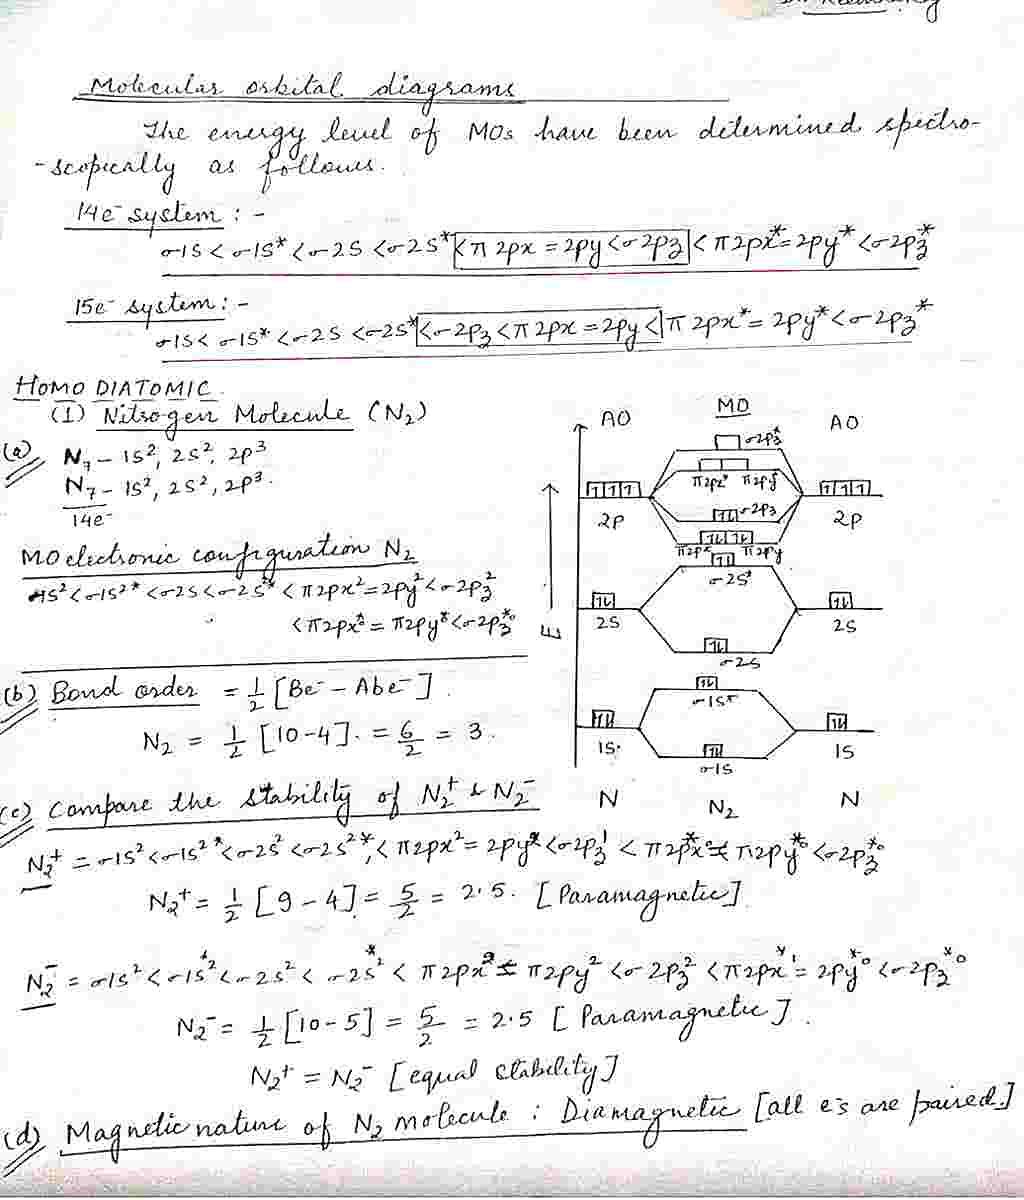 Molecular orbital diagrams
The energy level of MOs have been determined spectro-
-scopically as follows.
14e⁻ system : -
σ1S < σ1S* < σ2S < σ2S* < π2px = 2py < σ2pz < π2px* = 2py* < σ2pz*
15e⁻ system : -
σ1S < σ1S* < σ2S < σ2S* < σ2pz < π2px = 2py < π2px* = 2py* < σ2pz*
HOMO DIATOMIC
(1) Nitrogen Molecule (N₂)
(a) N₇ – 1S², 2S², 2p³
N₇ – 1S², 2S², 2p³.
14e⁻
MO electronic configuration N₂
σ1S² < σ1S²* < σ2S < σ2S²* < π2px² = 2py² < σ2pz²
< π2px*⁰ = π2py*⁰ < σ2pz*⁰
AO MO AO
σ2pz*
π2px* π2py*
σ2pz
2P 2P
π2px π2py
σ2S*
2S 2S
σ2S
σ1S*
1S 1S
σ1S
N N₂ N
E
(b) Bond order = 1/2 [Be⁻ – Abe⁻].
N₂ = 1/2 [10 – 4]. = 6/2 = 3.
(c) Compare the stability of N₂⁺ & N₂⁻
N₂⁺ = σ1S² < σ1S²* < σ2S² < σ2S²*, < π2px² = 2py² < σ2pz¹ < π2px*⁰ = π2py*⁰ < σ2pz*⁰
N₂⁺ = 1/2 [9 – 4] = 5/2 = 2.5. [Paramagnetic]
N₂⁻ = σ1S² < σ1S*² < σ2S² < σ2S*² < π2px² = π2py² < σ2pz² < π2px*¹ = 2py*⁰ < σ2pz*⁰
N₂⁻ = 1/2 [10 – 5] = 5/2 = 2.5 [Paramagnetic].
N₂⁺ = N₂⁻ [equal stability]
(d) Magnetic nature of N₂ molecule : Diamagnetic [all e's are paired.]